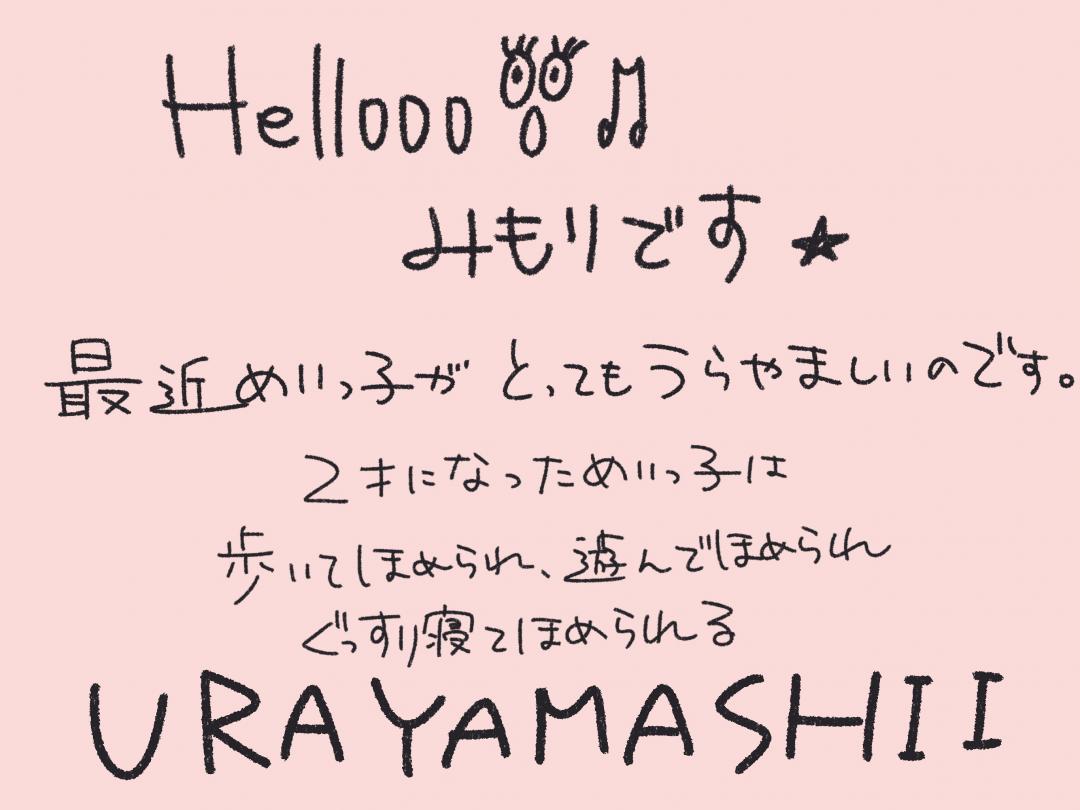 Hellooo♫
みもりです★
最近めいっ子がとってもうらやましいのです。
2才になっためいっ子は
歩いてほめられ、遊んでほめられ
ぐっすり寝てほめられる
URAYAMASHII